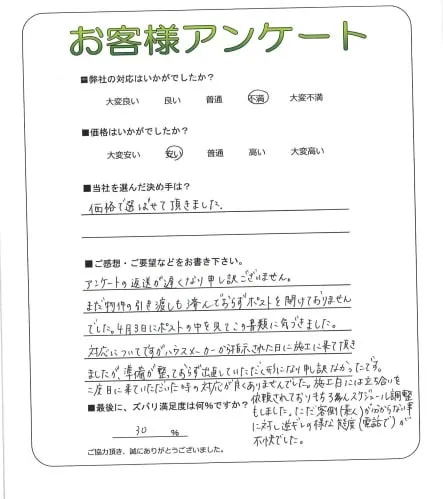 お客様アンケート
■弊社の対応はいかがでしたか?
大変良い 良い 普通 不満 大変不満
■価格はいかがでしたか?
大変安い 安い 普通 高い 大変高い
■当社を選んだ決め手は?
価格で選ばせて頂きました.
■ご感想・ご要望などをお書き下さい。
アンケートの返送が遅くなり申し訳ございません。
まだ物件の引き渡しも済んでおらずポストを開けておりません
でした。4月3日にポストの中を見てこの書類に気づきました。
対応についてですがハウスメーカーから指示された日に施工に来て頂き
ましたが、準備が整っておらず出直していただく形になり申し訳なかったです。
二度目に来ていただいた時の対応が良くありませんでした。施工日には立ち合いを
依頼されておりもちろんスケジュール調整
もしました。ただ客側(素人)が分からない事
に対し逆ギレの様な態度(電話で)が
不快でした。
■最後に、ズバリ満足度は何%ですか?
30 %
ご協力頂き、誠にありがとうございました。